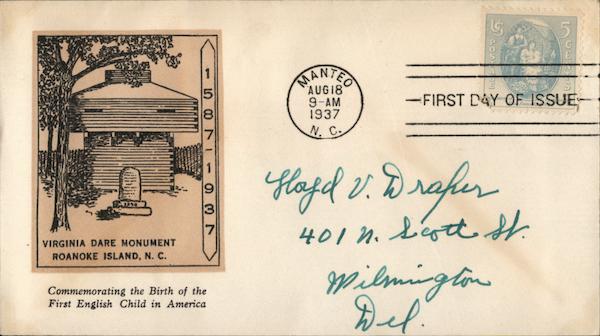 1587-1937
VIRGINIA DARE MONUMENT
ROANOKE ISLAND, N. C.
Commemorating the Birth of the
First English Child in America
MANTEO
AUG 18
9-AM
1937
N. C.
FIRST DAY OF ISSUE
5
Floyd V. Draper
401 N. Scott St.
Wilmington
Del.